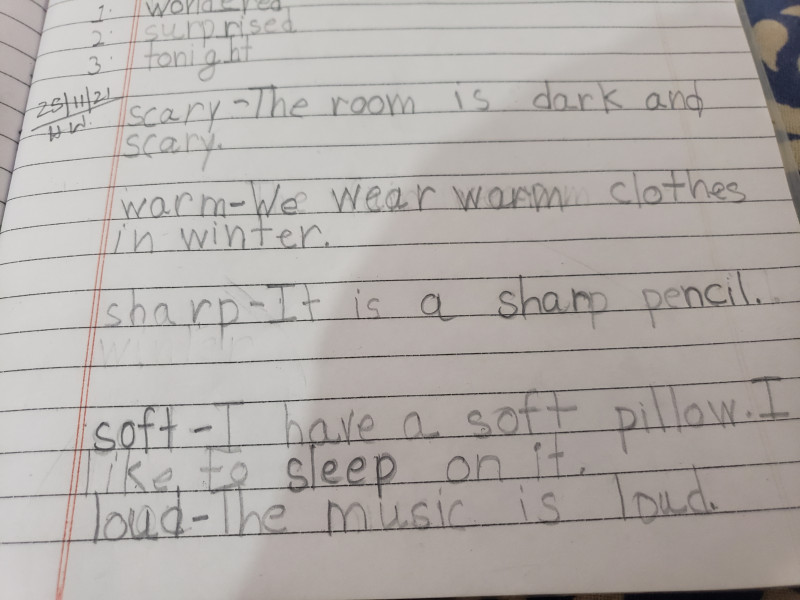 1. wondered
2. surprised
3. tonight
25/11/21
H.W.
scary-The room is dark and
scary.
warm-We wear warm clothes
in winter.
sharp-It is a sharp pencil.
soft-I have a soft pillow.I
like to sleep on it.
loud-The music is loud.